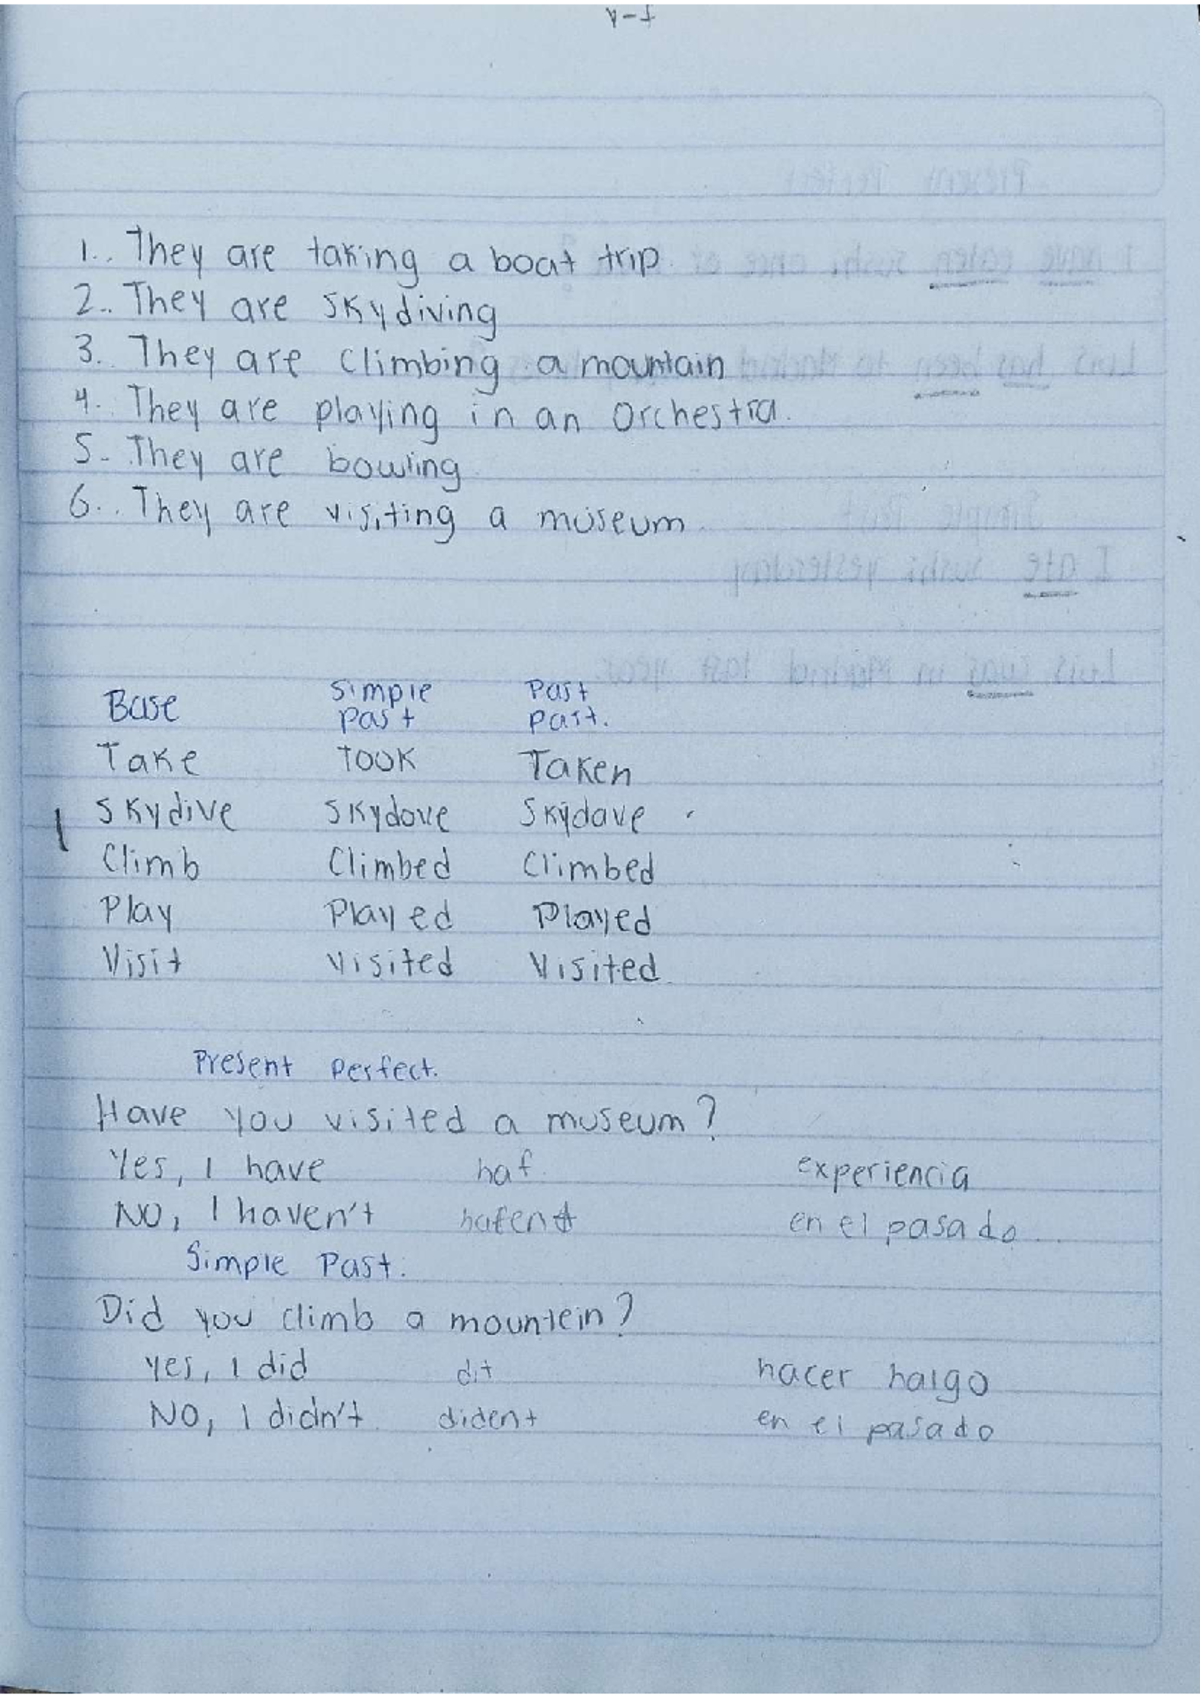 1.. They are taking a boat trip.
2.. They are skydiving
3. They are climbing a mountain
4. They are playing in an orchestra.
5. They are bowling.
6.. They are visiting a museum.
Base Simple past Past part.
Take Took Taken
Skydive Skydove Skydave
Climb Climbed Climbed
Play Played Played
Visit Visited Visited.
Present perfect.
Have you visited a museum?
Yes, I have haf. experiencia
NO, I haven't hafent en el pasado...
Simple Past.
Did you climb a mountein?
Yes, I did dit hacer halgo
NO, I didn't. dident en el pasado